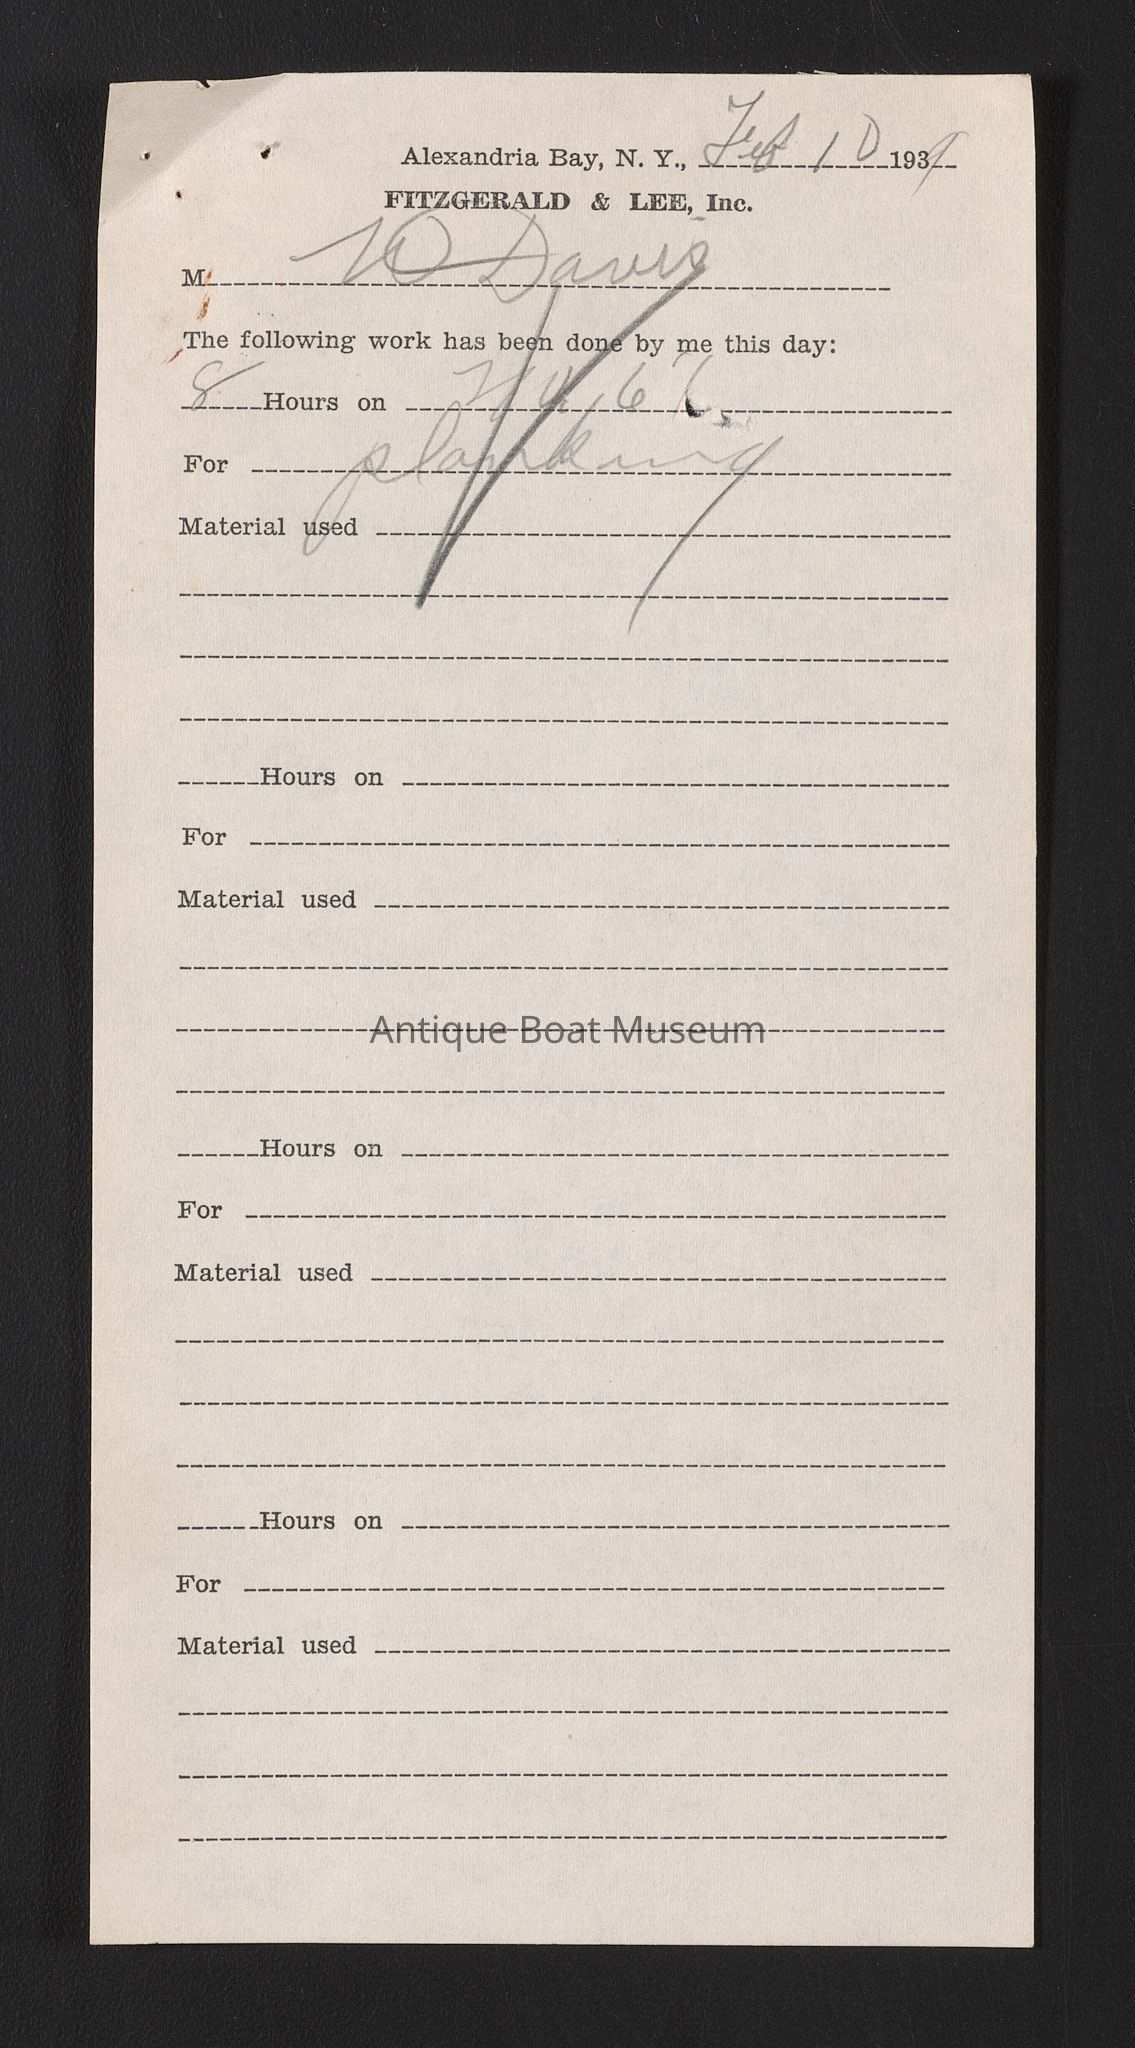 Alexandria Bay, N. Y., Feb 10 1939
FITZGERALD & LEE, Inc.
M W Davis
The following work has been done by me this day:
8 Hours on
For planking
Material used
Hours on
For
Material used
Antique Boat Museum
Hours on
For
Material used
Hours on
For
Material used